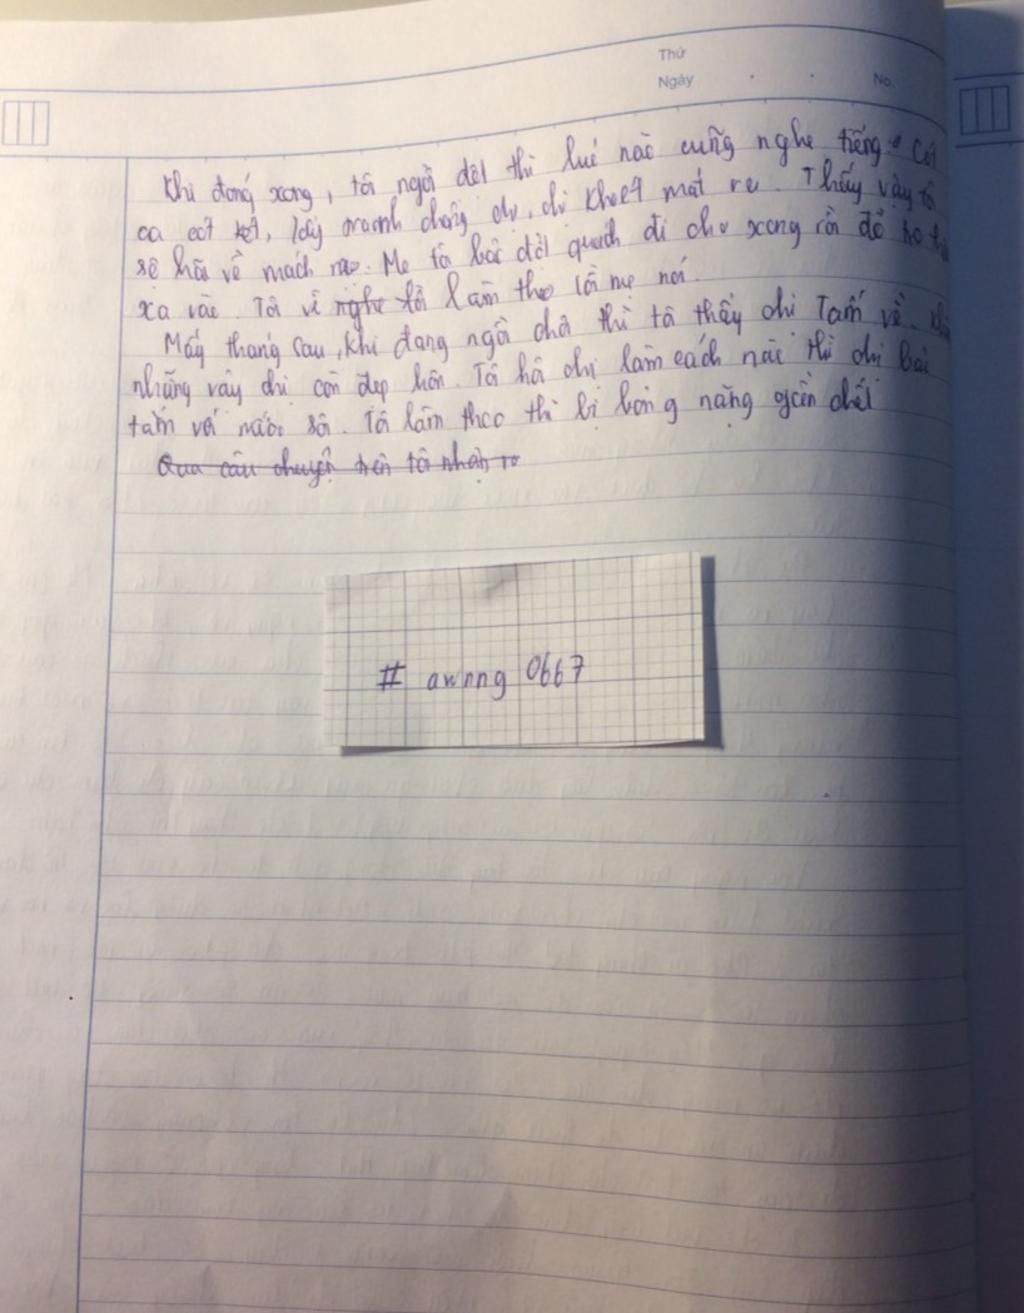 Thứ
Ngày
No.
Khi đóng xong, tôi ngồi dệt thì lúc nào cũng nghe tiếng Cót
ca cót két, lấy tranh chồng chị, chị khoét mắt ra. Thấy vậy tô
sợ hãi về mách mẹ. Mẹ tôi bảo đốt quách đi cho xong rồi đổ tro
xa vào. Tôi về nghe tôi làm theo lời mẹ nói.
Mấy tháng sau, khi đang ngồi chơi thì tôi thấy chị Tấm về.
những vậy chị còn đẹp hơn. Tôi hỏi chị làm cách nào thì chị bảo
tắm với nước sôi. Tôi làm theo thì bị bỏng nặng gần chết
Qua câu chuyện trên tôi nhận ra
# awnng 0667